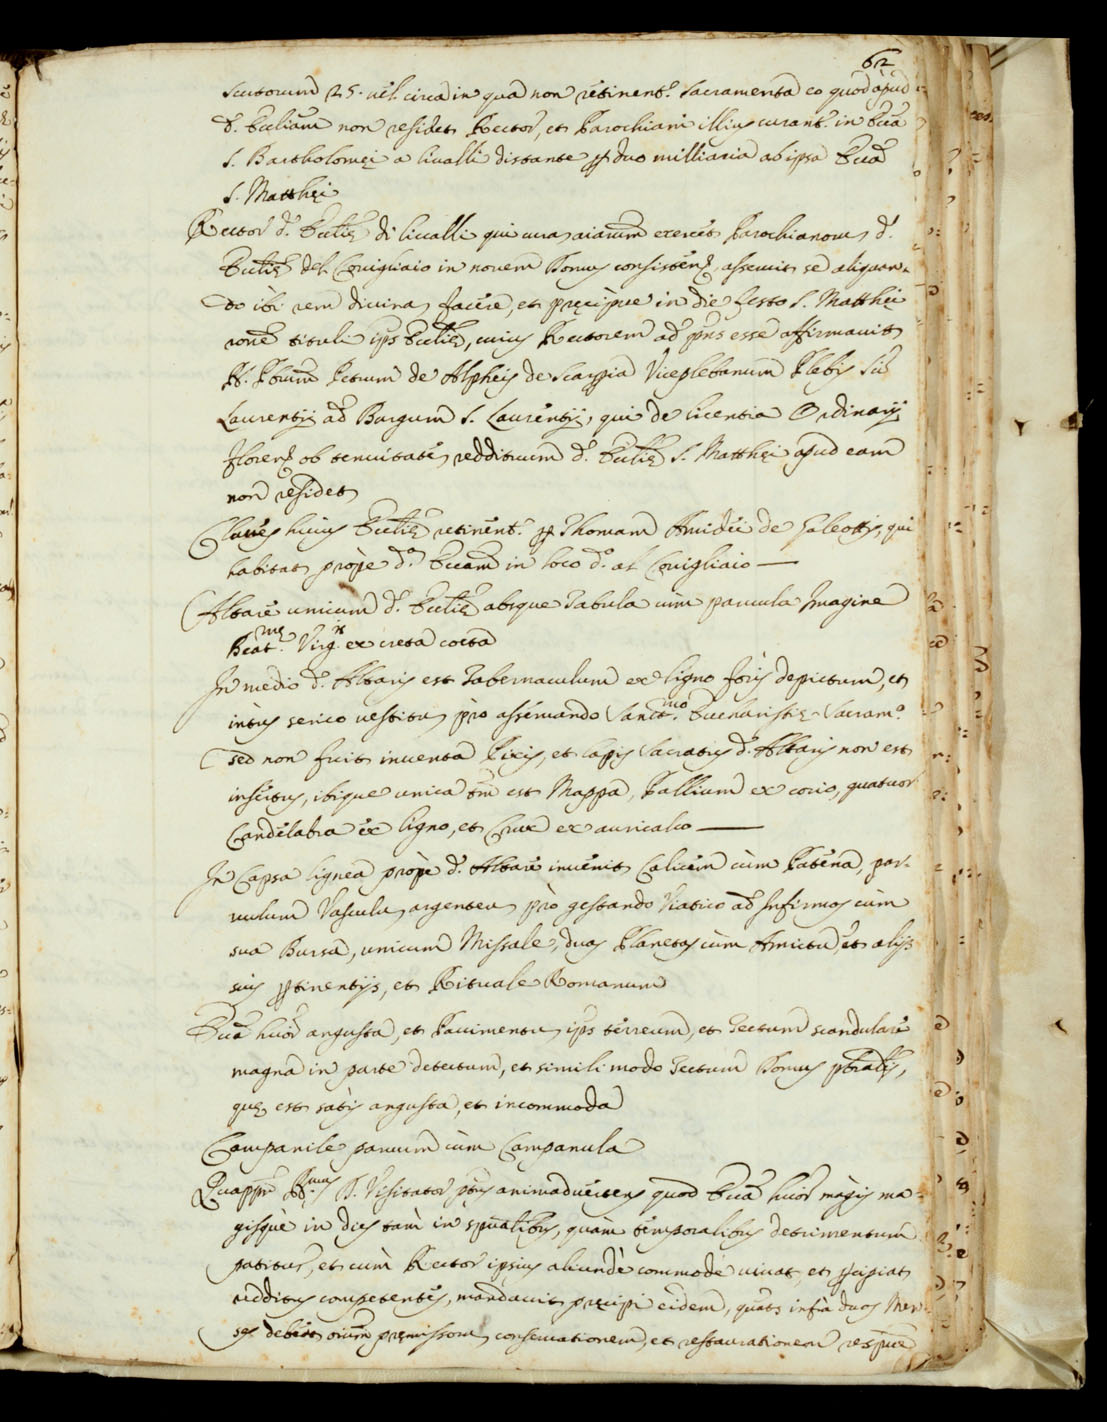 62
scutorum 25. vel circa in qua non retinent.r Sacramenta eo quod apud
d. Eccliam non residet Rector, et Parochiani illius curant.r in Ecca
S. Bartholomęi a livalli distante p duo milliaria ab ipsa Ecca
S. Matthęi
Rector d. Ecclię di livalli qui curas aiarum exercet Parochianorum d.
Ecclię del Covigliaio in novem Domus consistent, asseruit se aliquan-
do ibi rem divinam facere, et pręcipue in die festo S. Matthęi
rone tituli ips Ecclię, cuius Rectorem ad pns esse affirmavit
R. Pbrum Petrum de Alpheis de Scarpia Viceplebanum Plebis Sti
Laurentij ad Burgum S. Laurentij, qui de licentia Ordinarij
floren ob tenuitatem reddituum d. Ecclię S. Matthęi apud eam
non residet
Claves huius Ecclię retinent.r p Thomam Amidei de Galeottis, qui
habitat prope d. Eccam in loco d.o al Covigliaio
Altare unicum d. Ecclię absque Tabula cum parvula Imagine
Beat.mę Virg.is ex creta cocta
In medio d. Altaris est Tabernaculum ex ligno foris depictum, et
intus serico vestitum pro asservando Sanct.mo Eucharistię Sacram.o
sed non fuit inventa Pixis, et lapis sacratus d. Altaris non est
insertus, ibique unica tm est Mappa, Pallium ex corio, quatuor
Candelabra ex ligno, et Crux ex auricalco
In Capsa lignea prope d. Altare invenit Calicem cum Patena, par-
vulum Vasculum argenteum pro gestando Viatico ad Infirmos cum
sua Bursa, unicum Missale, duas Planetas cum Amictu, et alijs
suis ptinentijs, et Rituale Romanum
Ecca huiox angusta, et Pavimentum ips terreum, et Tectum scandulare
magna in parte detectum, et simili modo Tectum Domus pbralis,
quę est satis angusta, et incommoda
Campanile parvum cum Campanula
Quapp R.mus D. Visitator ptus animadvertens quod Ecca huiox magis ma-
gisque in dies tam in spualibus, quam temporalibus detrimentum
patitur, et cum Rector ipsius aliunde commode vivat, et pcipiat
redditus competentes, mandavit pręcipi eidem, quats infra duos Men-
ses debeat oium pręmissorum conservationem, et restaurationem respive